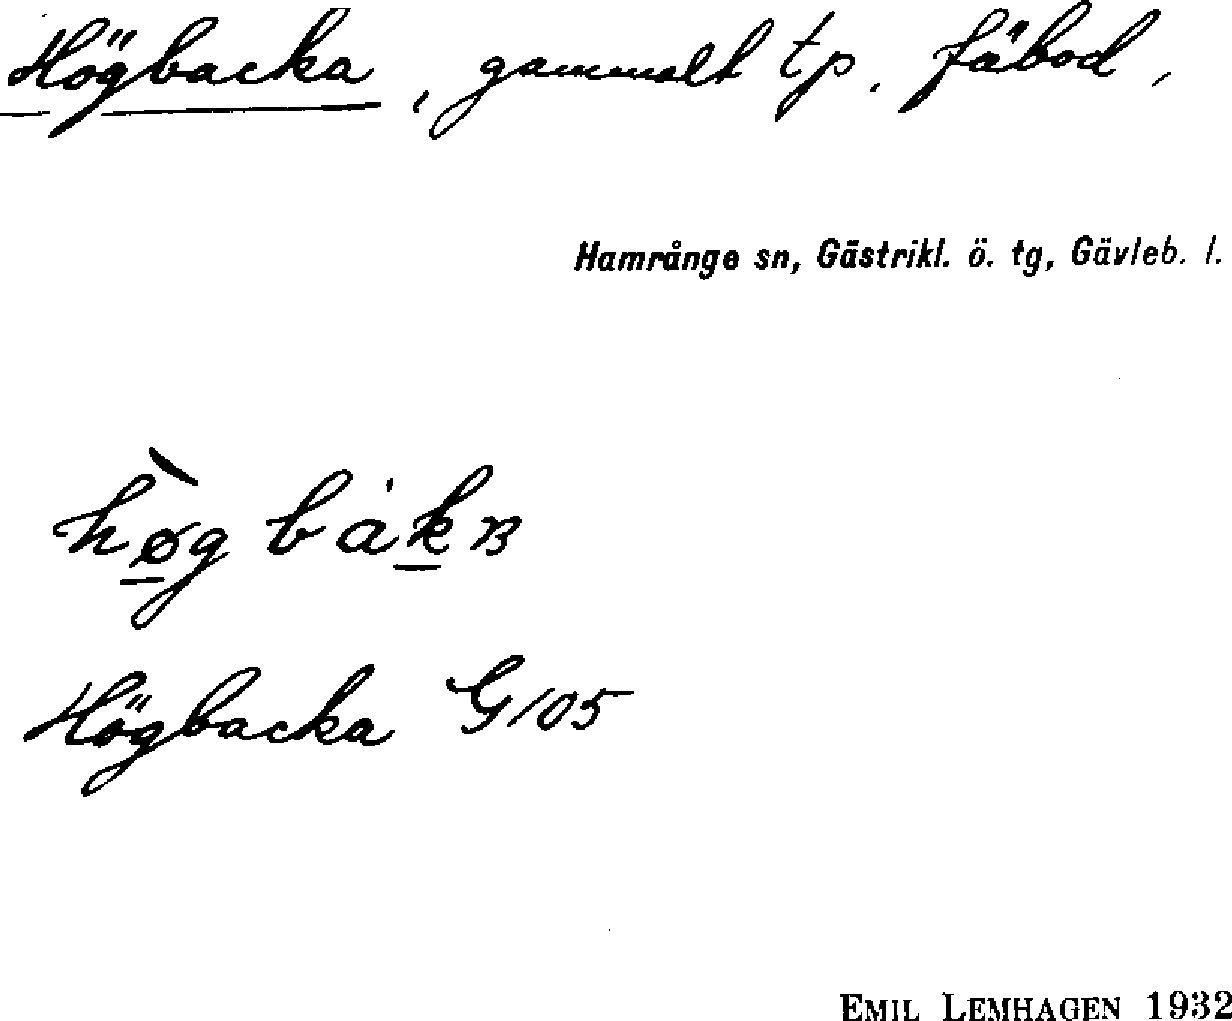 Högbacka, gammalt tp. fäbod,
Hamrånge sn, Gästrikl. ö. tg, Gävleb. l.
Högbacka G105
EMIL LEMHAGEN 1932